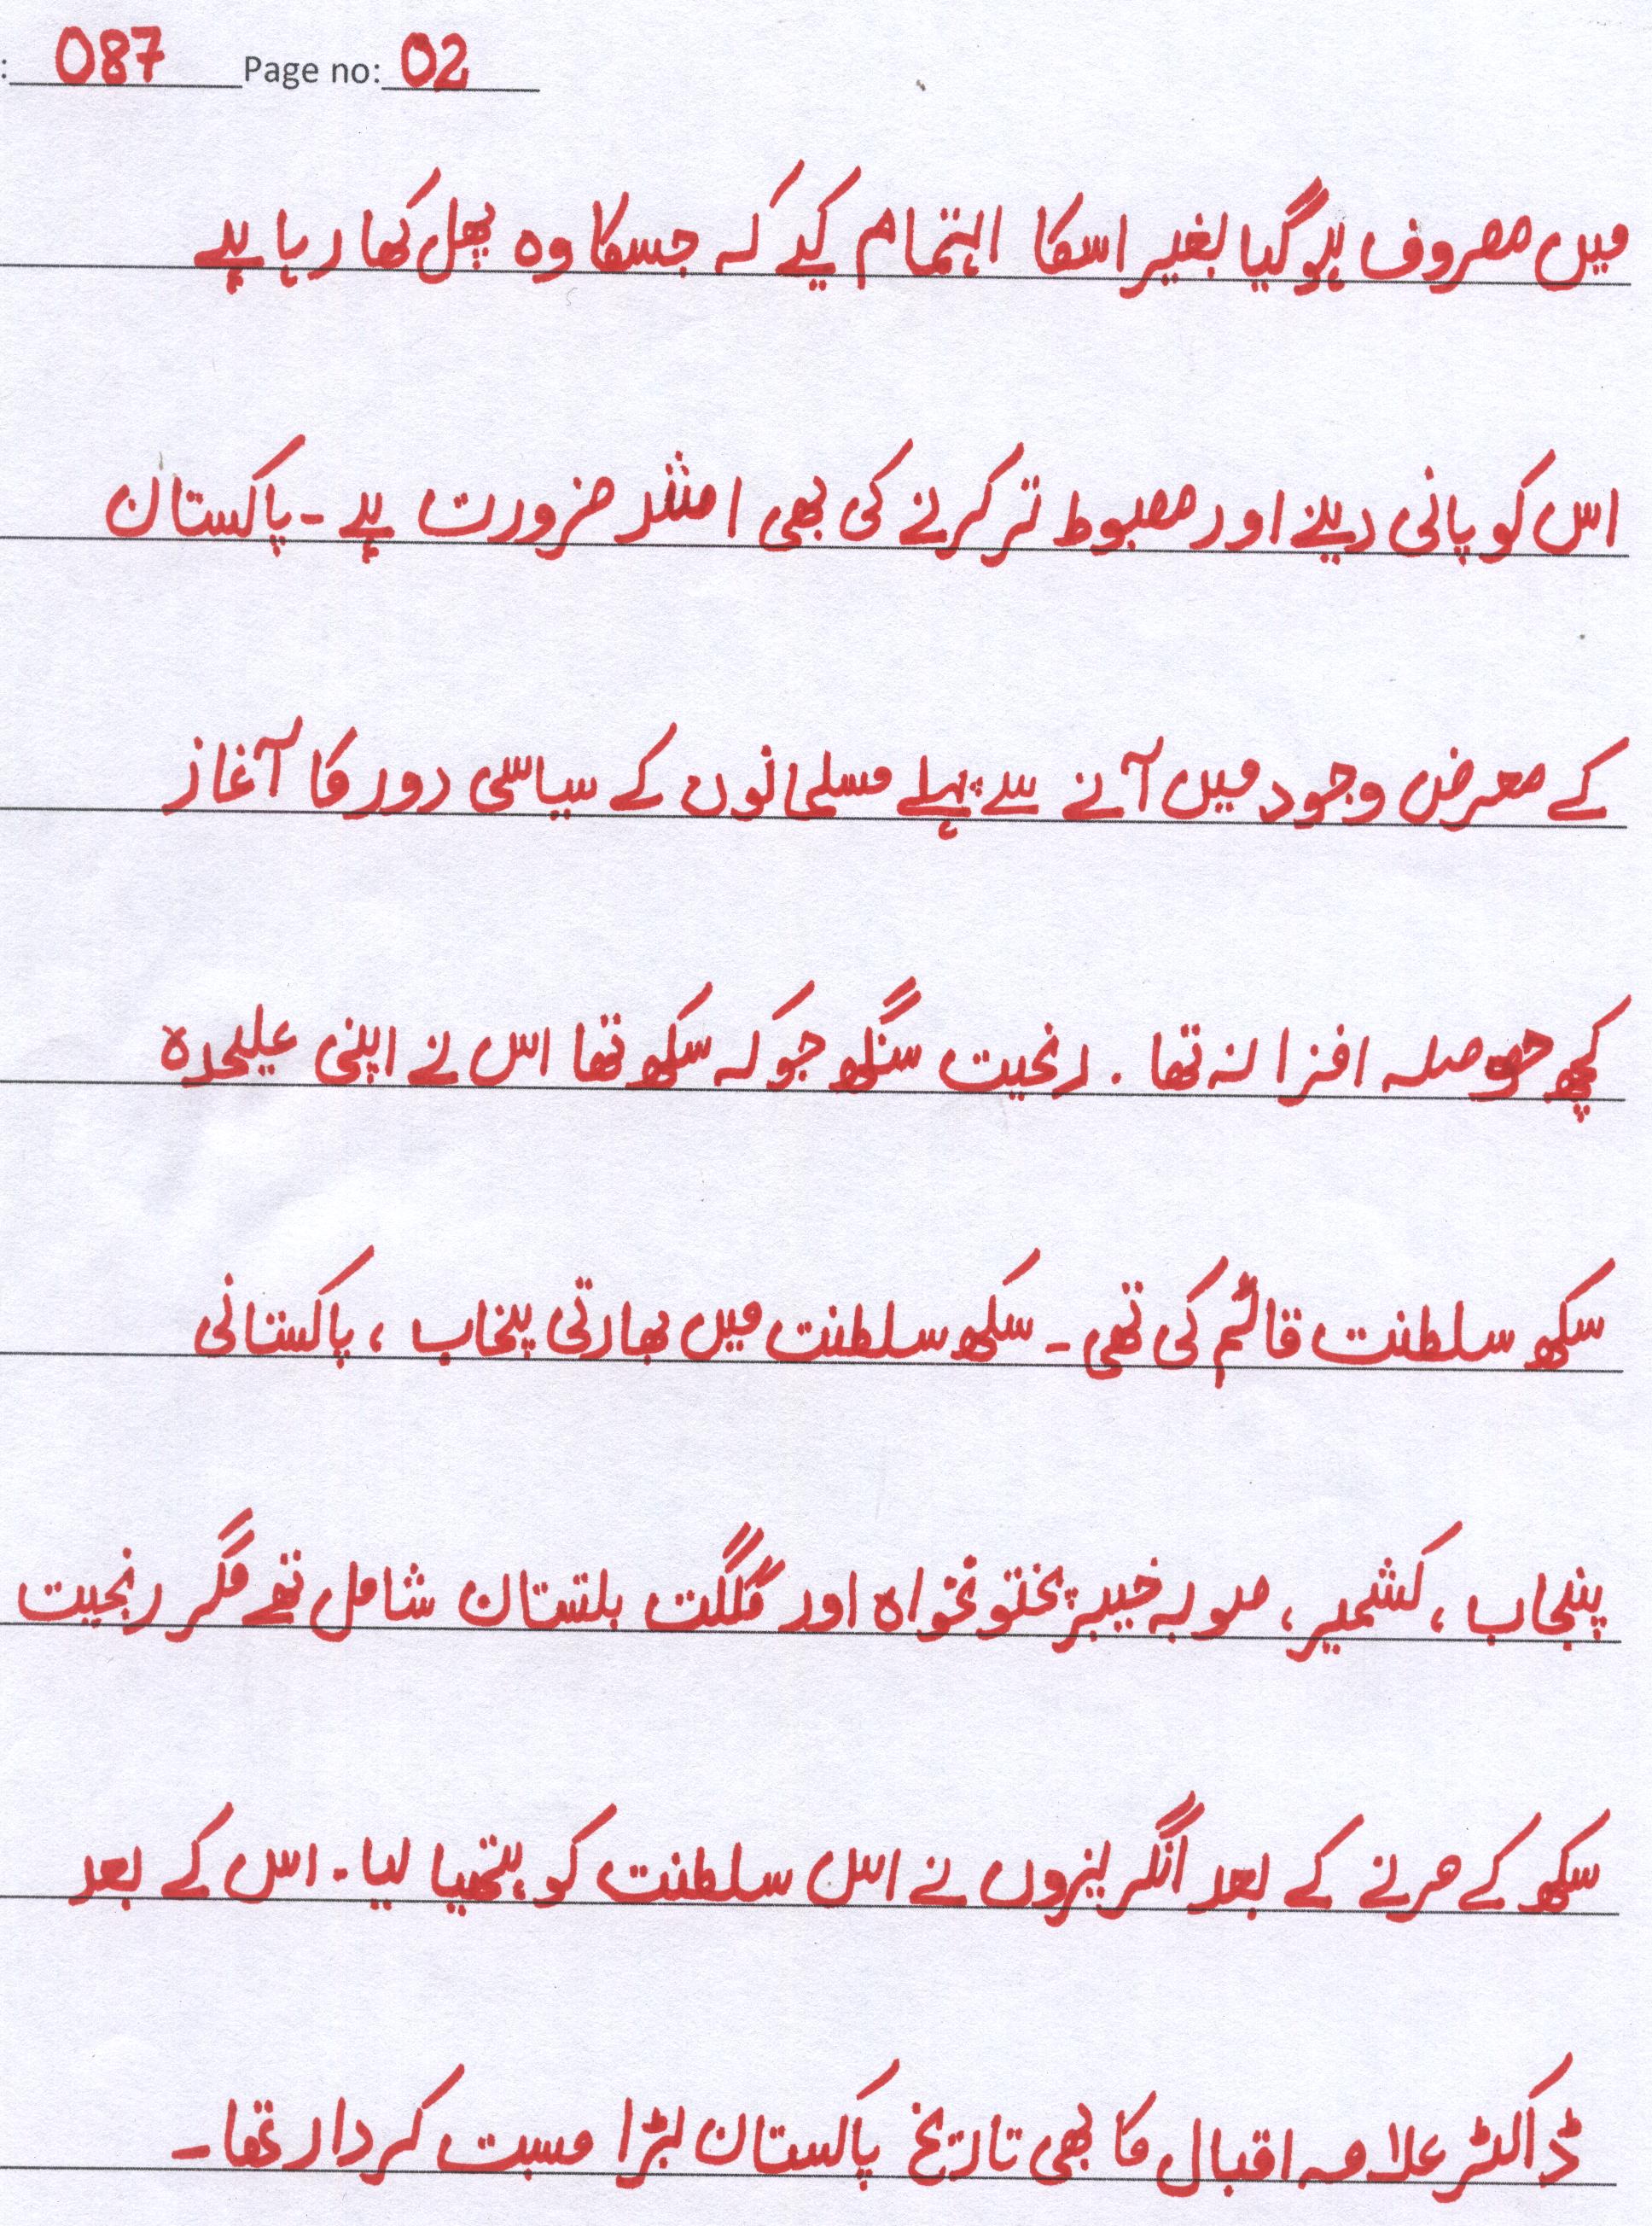 : 087 Page no: 02
میں مصروف ہوگیا بغیر اسکا اہتمام کیے کہ جسکا وہ پھل کھا رہا ہے
اس کو پانی دینے اور مضبوط تر کرنے کی بھی اشد ضرورت ہے - پاکستان
کے معرض وجود میں آنے سے پہلے مسلمانوں کے سیاسی دور کا آغاز
کچھ حوصلہ افزا نہ تھا . رنجیت سنگھ جو کہ سکھ تھا اس نے اپنی علیحدہ
سکھ سلطنت قائم کی تھی - سکھ سلطنت میں بھارتی پنجاب ، پاکستانی
پنجاب ، کشمیر ، صوبہ خیبر پختونخواہ اور گلگت بلتستان شامل تھے مگر رنجیت
سکھ کے مرنے کے بعد انگریزوں نے اس سلطنت کو ہتھیا لیا . اس کے بعد
ڈاکٹر علامہ اقبال کا بھی تاریخ پاکستان بڑا مسبت کردار تھا -